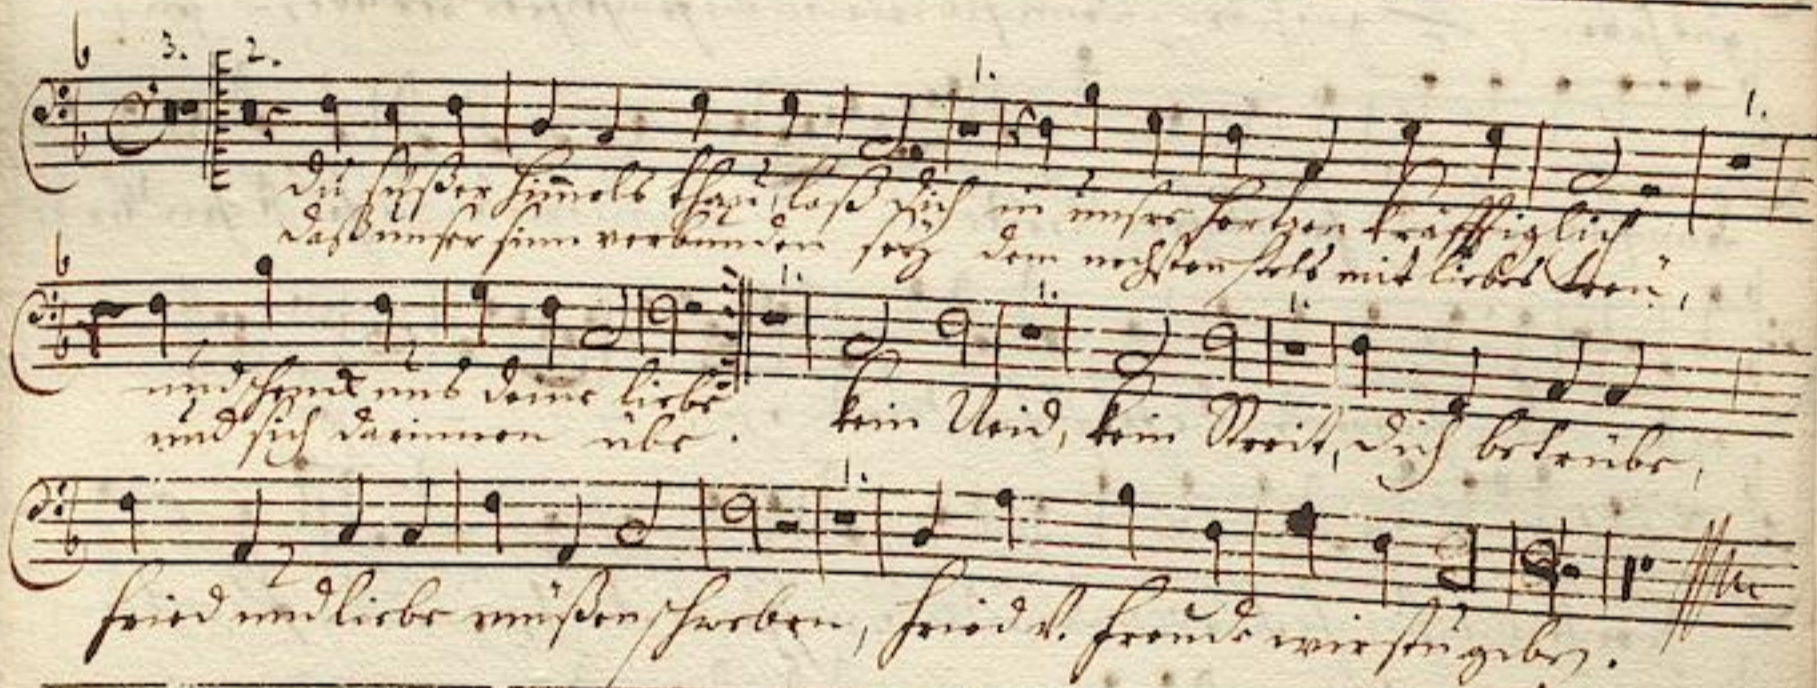 3. 2. 1. 1.
Du süßer himels thau, laß dich in unsre hertzen kräfftiglich
daß unser sinn verbunden seÿ dem nechsten stets mit liebes treü,
1. 1. 1.
und schenck uns deine liebe kein Neid, kein Streit, dich betrübe,
und sich darinnen übe.
1.
fried und liebe müßen schweben, fried v. freude wirstu geben.